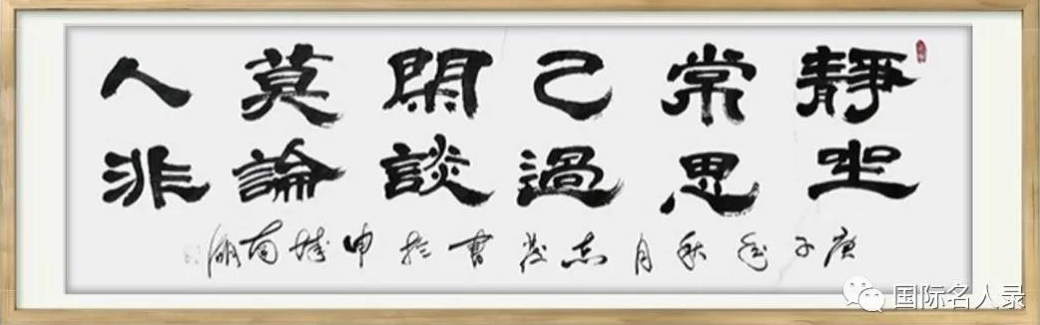 靜坐
常思
己過
閑談
莫論
人非
庚子年秋月志書於申城南湖
国际名人录